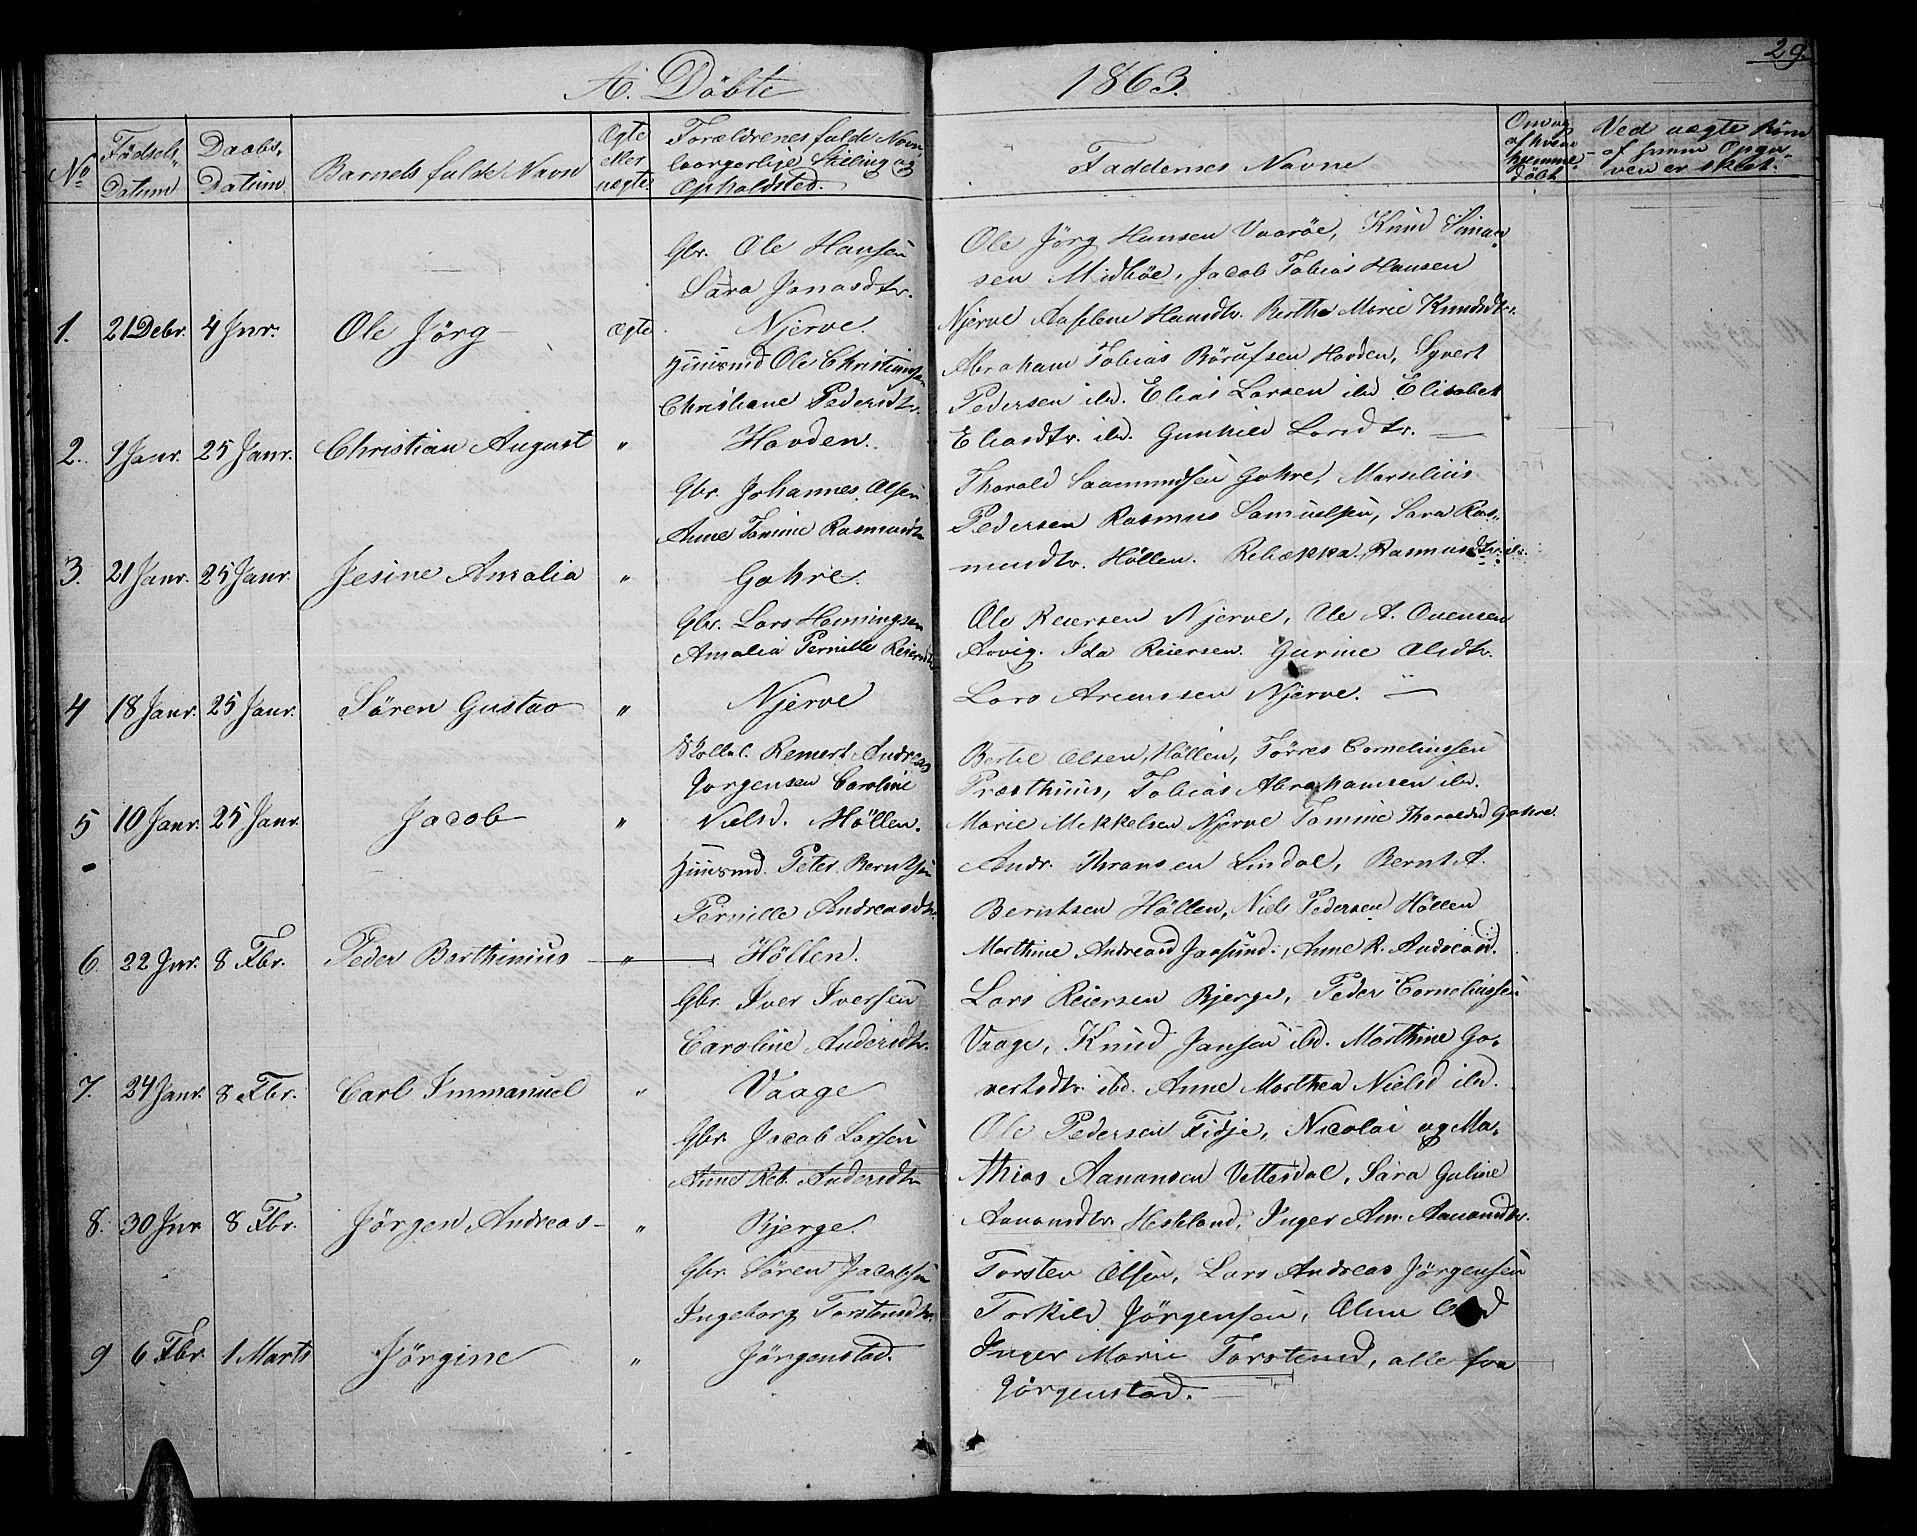 29.
A. Döbte
1863.
No
Födsels Datum
Daabs Datum
Barnets fulde Navn
Ægte eller uægte
Forældrenes fulde Navn borgerlige Stiling og Opholdsted.
Faddernes Navne
Om og af hvem hjemme döbt
Ved uægte Börn
1. 21 Debr. 4 Jnr. Ole Jörg Ægte
Gbr. Ole Hansen
Sara Jonasdtr.
Njerve
Ole Jörg Hansen Vaaröe, Knud Siman
sen Midböe, Jacob Tobias Hansen
Njerve Aaselene Hansdtr. Berthe Marie Knudsdtr.
2. 9 Janr. 25 Janr. Christian August "
Huusmd Ole Christiansen
Christiane Pedersdtr.
Hovden.
Abraham Tobias Börufsen Hovden, Syvert
Pedersen ibd. Elias Larsen ibd Elisabet
Eliasdtr. ibd. Gunhild Larsdtr.
3. 21 Janr. 25 Janr. Jesine Amalia "
Gbr. Johannes Olsen
Anne Tomine Rasmusdtr
Gahre.
Thorald Saamundsen Gahre, Marselius
Pedersen Rasmus Samuelsen, Sara Ras-
musdtr. Höllen. Rebækka Rasmusdtr. ib.
4 18 Janr. 25 Janr. Sören Gustav "
Gbr. Lars Hemmingsen
Amalia Pernille Reiersdtr
Njerve
Ole Reiersen Njerve, Ole A. Ovensen
Aavig. Ida Reiersen. Gurine Olsdtr.
Lars Arenssen Njerve.
5 10 Janr. 25 Janr. Jacob "
Remert Andreas
Jorgensen Caroline
Nielsd. Höllen.
Bertil Olsen, Höllen, Törres Corneliussen
Præsthuus, Tobias Abrahamsen ibd.
Marie Mikkelsen Njerve Tomine Thoraldsd Gahre
6. 22 Jnr. 8 Fbr. Peder Barthinius "
Huusmd. Peter Berntsen
Pernille Andreasdtr.
Höllen.
Andr. Thransen Lindal, Bernt A.
Berntsen Höllen, Niels Pedersen Höllen
Marthine Andreasd Jaasund., Anne R. Andreasd.
7. 24 Janr. 8 Fbr. Carl Immanuel "
Gbr. Iver Iversen
Caroline Andersdtr.
Vaage
Lars Reiersen Bjerge, Peder Corneliussen
Vaage, Knud Jansen ibd. Marthine Go-
vertsdtr. ibd. Anne Marthea Nielsd ibd.
8. 30 Jnr 8 Fbr. Jörgen Andreas "
Gbr. Jacob Larsen
Anne Reb. Andersdtr
Bjerge.
Ole Pedersen Fidje, Nicolai og Ma-
thias Aanansen Vettesdal, Sara Guline
Aanansdtr. Heskland, Inger Am. Aanansdtr.
9 6 Fbr. 1 Marts Jörgine "
Gbr. Sören Jacobsen
Ingeborg Torstensdtr.
Jörgenstad.
Torsten Olsen, Lars Andreas Jörgensen
Torkild Jörgensen,
Inger Marie Torstensd, alle fra
Jörgenstad.